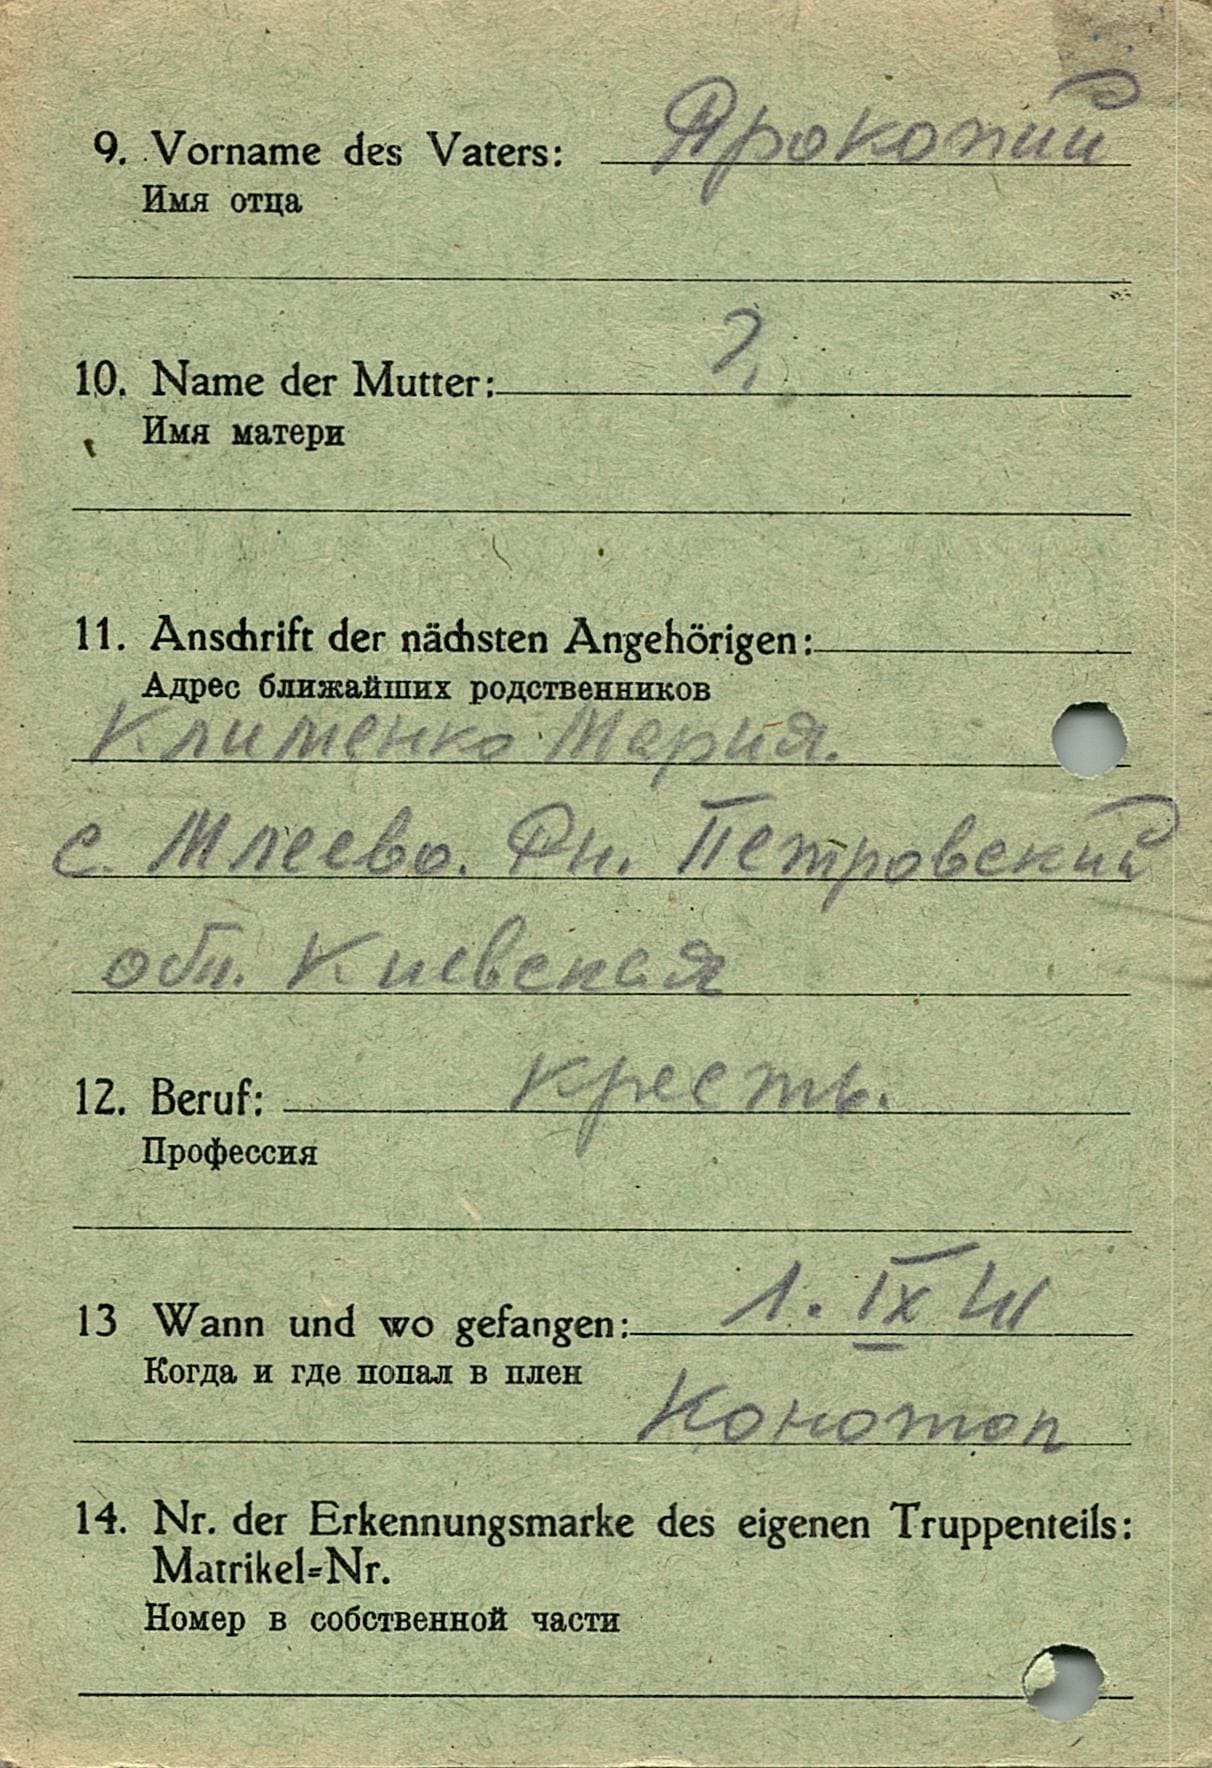 9. Vorname des Vaters: Прокопий
Имя отца
10. Name der Mutter: ?
Имя матери
11. Anschrift der nächsten Angehörigen:
Адрес ближайших родственников
Клименко Мария.
с. Млеево. Рн. Петровский
обл. Киевская
12. Beruf: кресть.
Профессия
13 Wann und wo gefangen: 1. IX 41
Когда и где попал в плен
Конотоп
14. Nr. der Erkennungsmarke des eigenen Truppenteils:
Matrikel-Nr.
Номер в собственной части